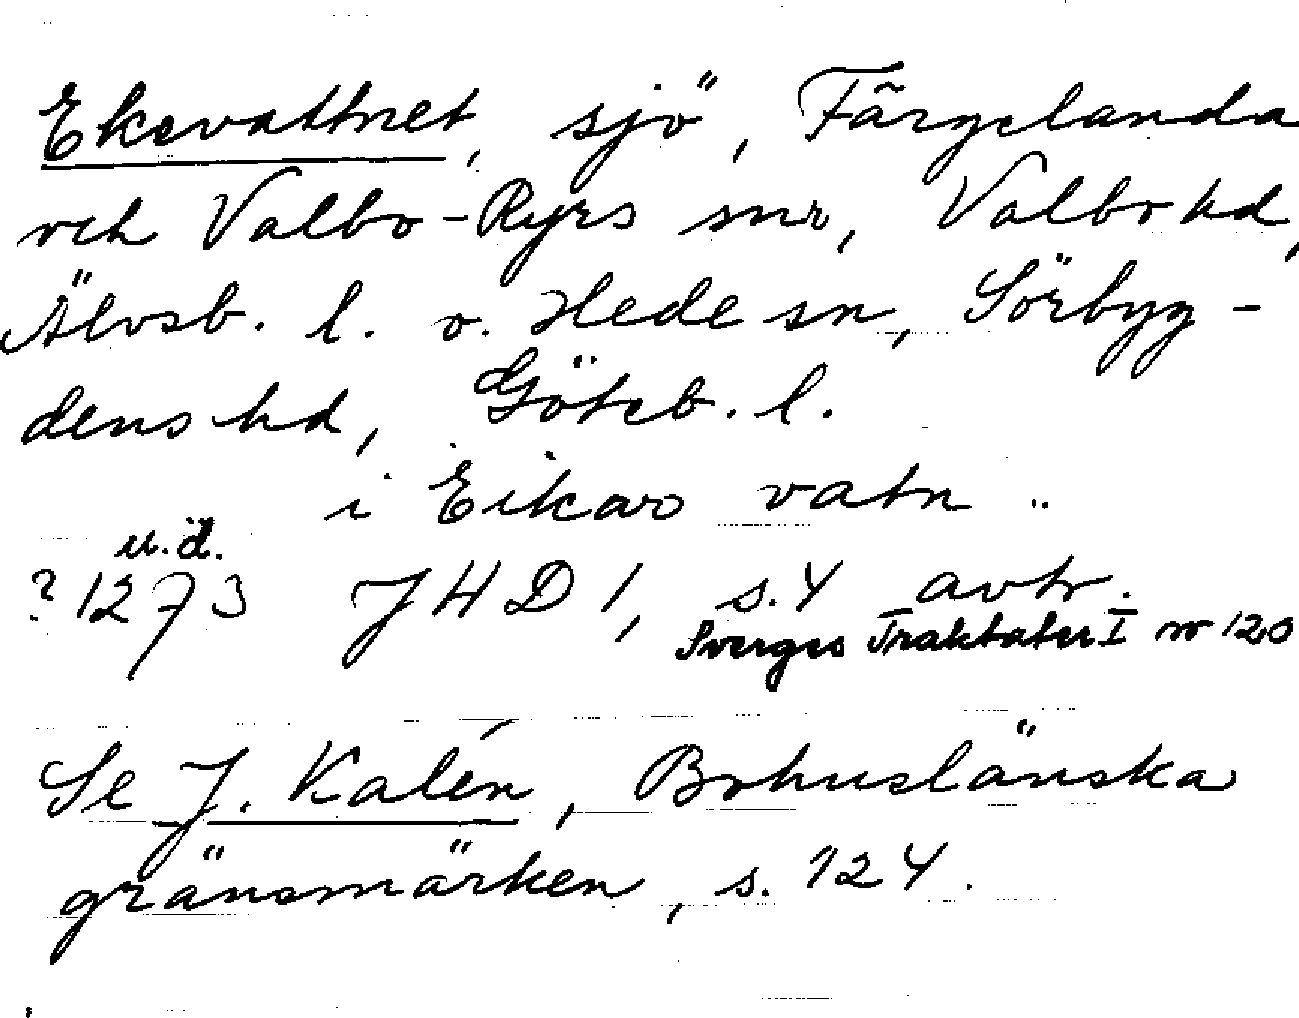 Ekevattnet, sjö, Färgelanda
och Valbo-Ryrs snr, Valbo hd,
Älvsb. l. o. Hede sn, Sörbyg-
dens hd, Göteb. l.
i Eikaro vatn ..
u.d.
? 1273 JHD 1, s.4 avtr.
Sverges Traktater I nr 120
Se J. Kalén, Bohuslänska
gränsmärken, s. 124.